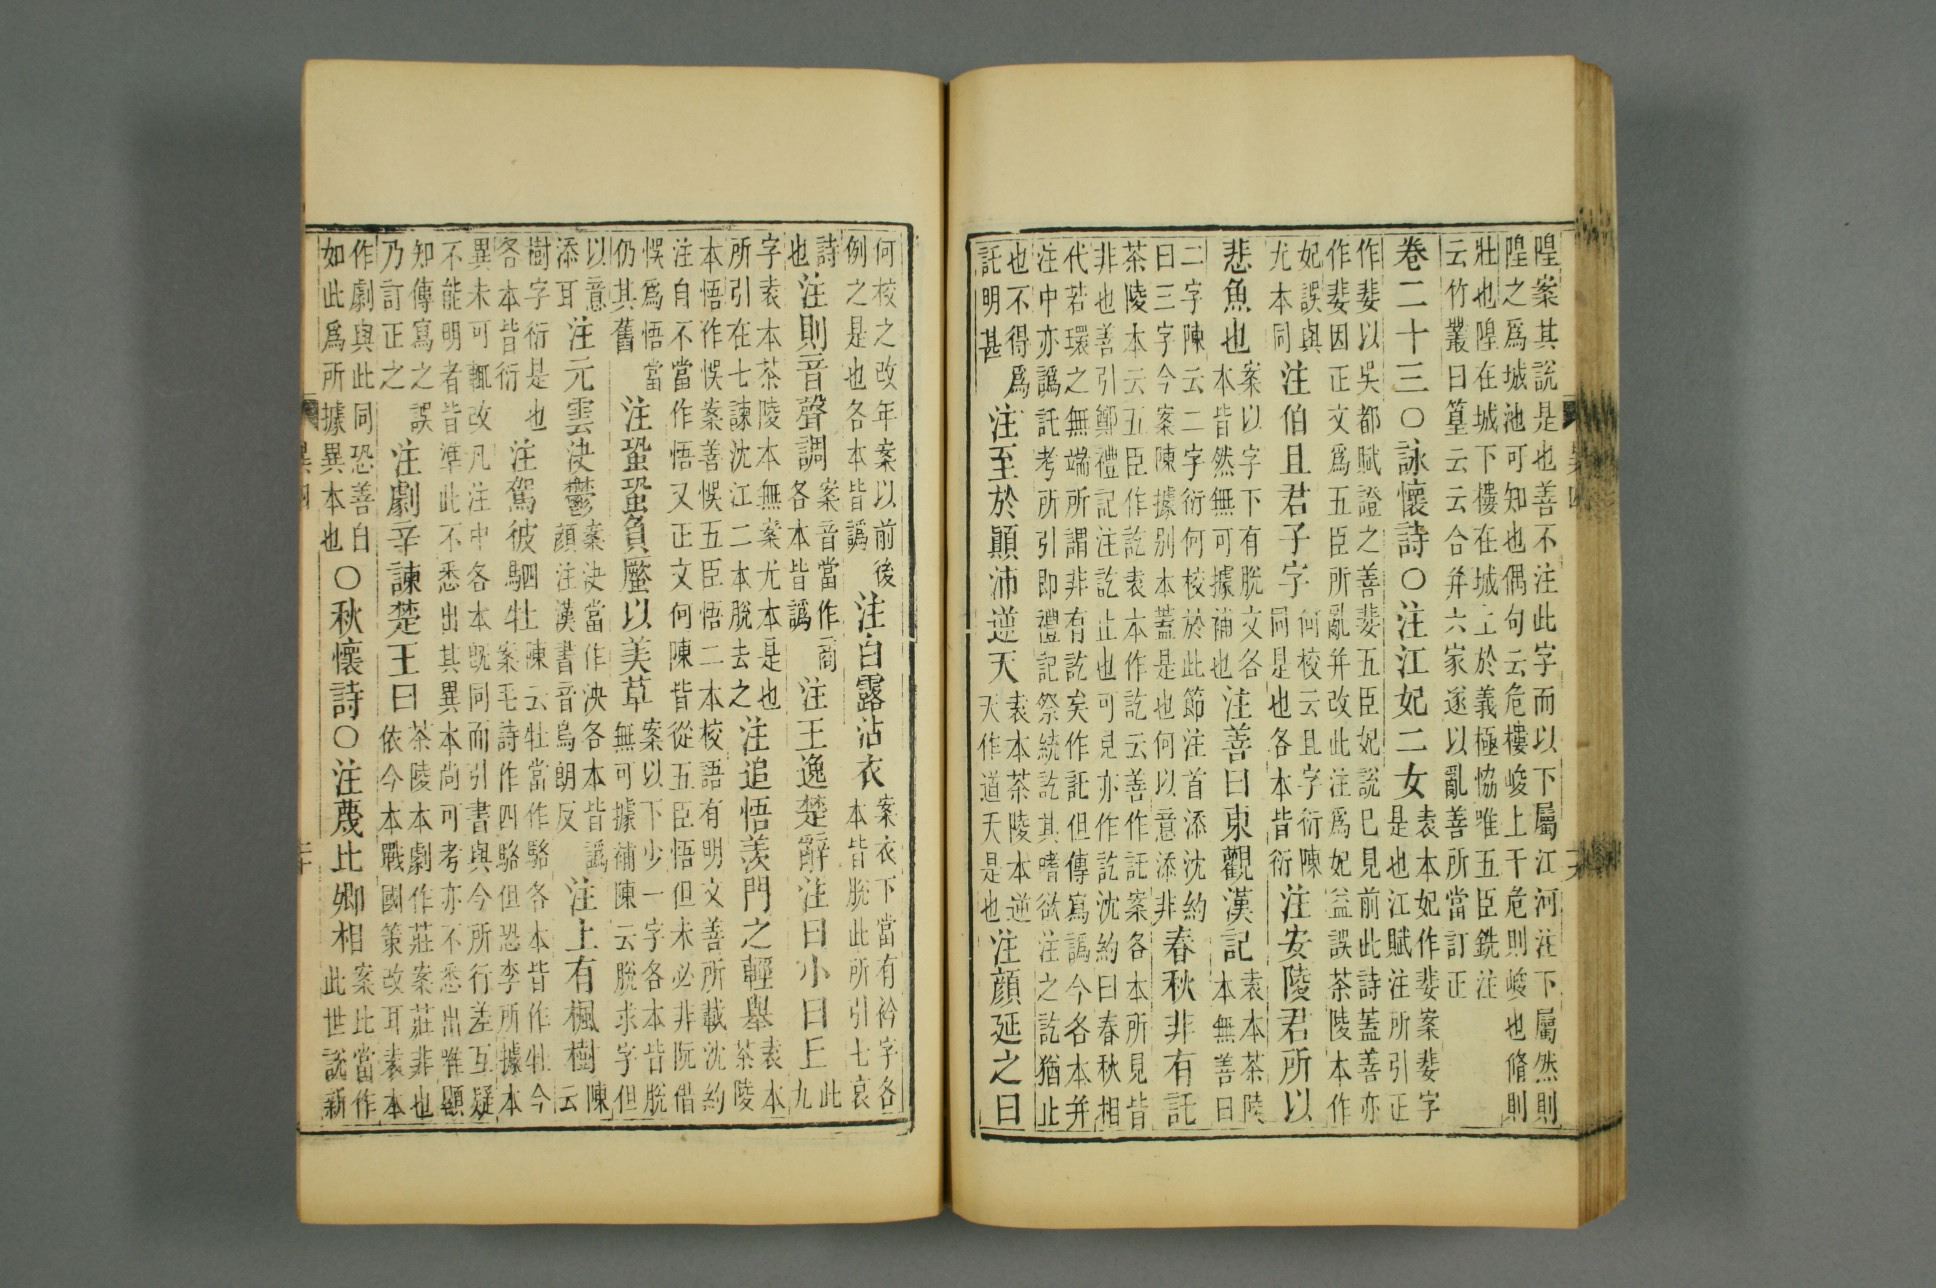 隍案其說是也善不注此字而以下屬江河注下屬然則
隍之爲城池可知也偶句云危樓峻上干危則峻也脩則
壯也隍在城下樓在城上於義極協唯五臣銑注
云竹叢曰篁云云合并六家遂以亂善所當訂正
卷二十三〇詠懷詩〇注江妃二女袁本妃作婓案婓字是也江賦注所引正
作婓以吳都賦證之善婓五臣妃說已見前此詩蓋善亦
作婓因正文爲五臣所亂并改此注爲妃益誤茶陵本作
妃誤與尤本同注伯且君子字何校云且字衍陳同是也各本皆衍注安陵君所以
悲魚也案以字下有脫文各本皆然無可據補也注善曰東觀漢記袁本茶陵本無善曰
二字陳云二字衍何校於此節注首添沈約曰三字今案陳據别本蓋是也何以意添非春秋非有託
茶陵本云五臣作訖袁本作訖云善作託案各本所見皆
非也善引鄭禮記注訖止也可見亦作訖沈約曰春秋相
代若環之無端所謂非有訖矣作託但傳寫譌今各本并
注中亦譌託考所引即禮記祭統訖其嗜欲注之訖猶止
也不得爲託明甚注至於顚沛逆天袁本茶陵本逆天作道天是也注顔延之曰
何校之改年案以前後例之是也各本皆譌注白露沾衣案衣下當有衿字各本皆脫此所引七哀
詩也注則音聲調案音當作商各本皆譌注王逸楚辭注曰小曰丘此九
字袁本茶陵本無案尤本是也所引在七諫沈江二本脫去之注追悟羡門之輕舉袁本茶陵
本悟作悮案善悮五臣悟二本校語有明文善所載沈約
注自不當作悟又正文何陳皆從五臣悟但未必非阮借
悮爲悟當仍其舊注蛩蛩負蟨以美草案以下少一字各本皆脫無可據補陳云脫求字但
以意添耳注元雲決鬱案決當作泱各本皆譌顔注漢書音烏朗反注上有楓樹陳云
樹字衍是也各本皆衍注駕彼駟牡陳云牡當作駱各本皆作牡今案毛詩作四駱但恐李所據本
異未可輒改凡注中各本旣同而引書與今所行差互疑
不能明者皆準此不悉出其異本尚可考亦不悉出唯顯
知傳寫之誤乃訂正之注劇辛諫楚王曰茶陵本劇作莊案莊非也依今本戰國策改耳袁本
作劇與此同恐善自如此爲所據異本也〇秋懷詩〇注蔑比卿相案比當作此世說新